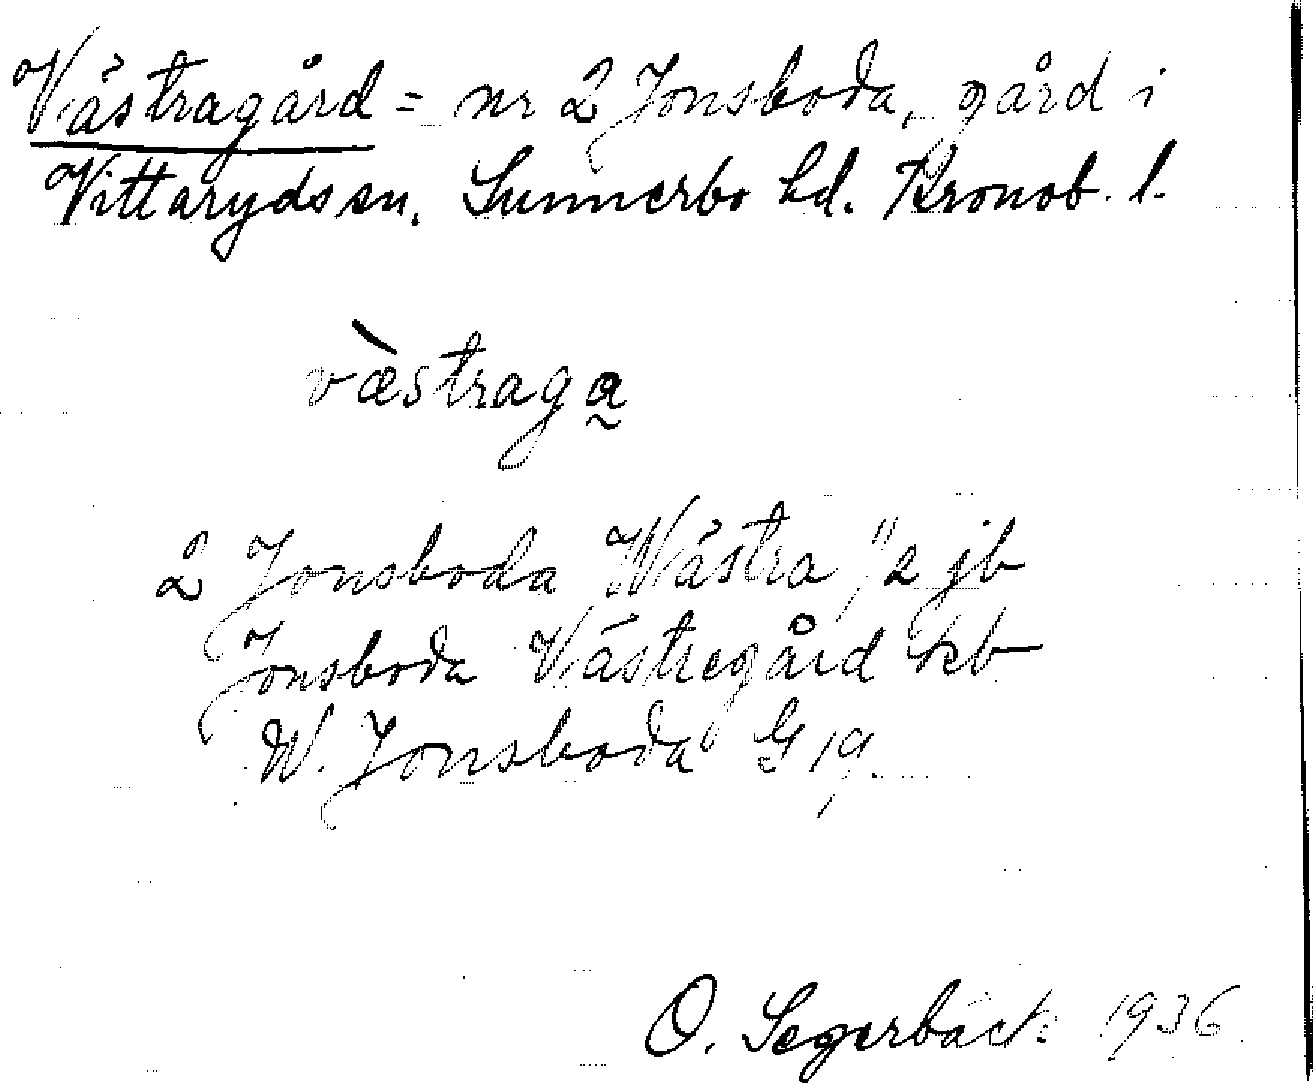 Västragård = nr 2 Jonsboda, gård i
Vittaryds sn. Sunnerbo hd. Kronob. l.
væ̀straga̰
2 Jonsboda Wästra "2 jb
Jonsboda Västregård kb
W. Jonsboda" G 19.
O. Segerbäck 1936